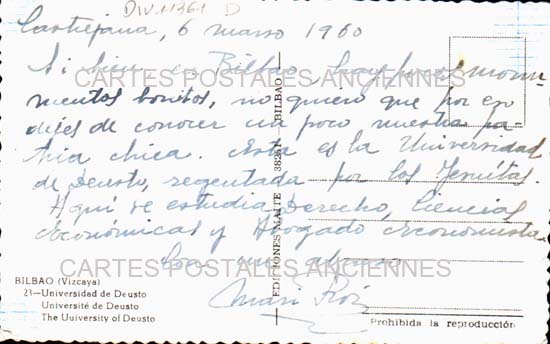 DIV. 11361 D
6 marzo 1960
Si bien en Bilbao hay pocos monu
mentos bonitos, no quiero que por eso
dejes de conocer un poco nuestra pa
tria chica. Esta es la Universidad
de Deusto, regentada por los Jesuitas.
Aquí se estudia Derecho, Ciencias
Económicas y Abogado Economista.
Con un abrazo
Mari
CARTES POSTALES ANCIENNES
CARTES POSTALES ANCIENNES
CARTES POSTALES ANCIENNES
EDICIONES MAITE BILBAO
BILBAO (Vizcaya)
23—Universidad de Deusto
Université de Deusto
The Uuiversity of Deusto
Prohibida la reproducción